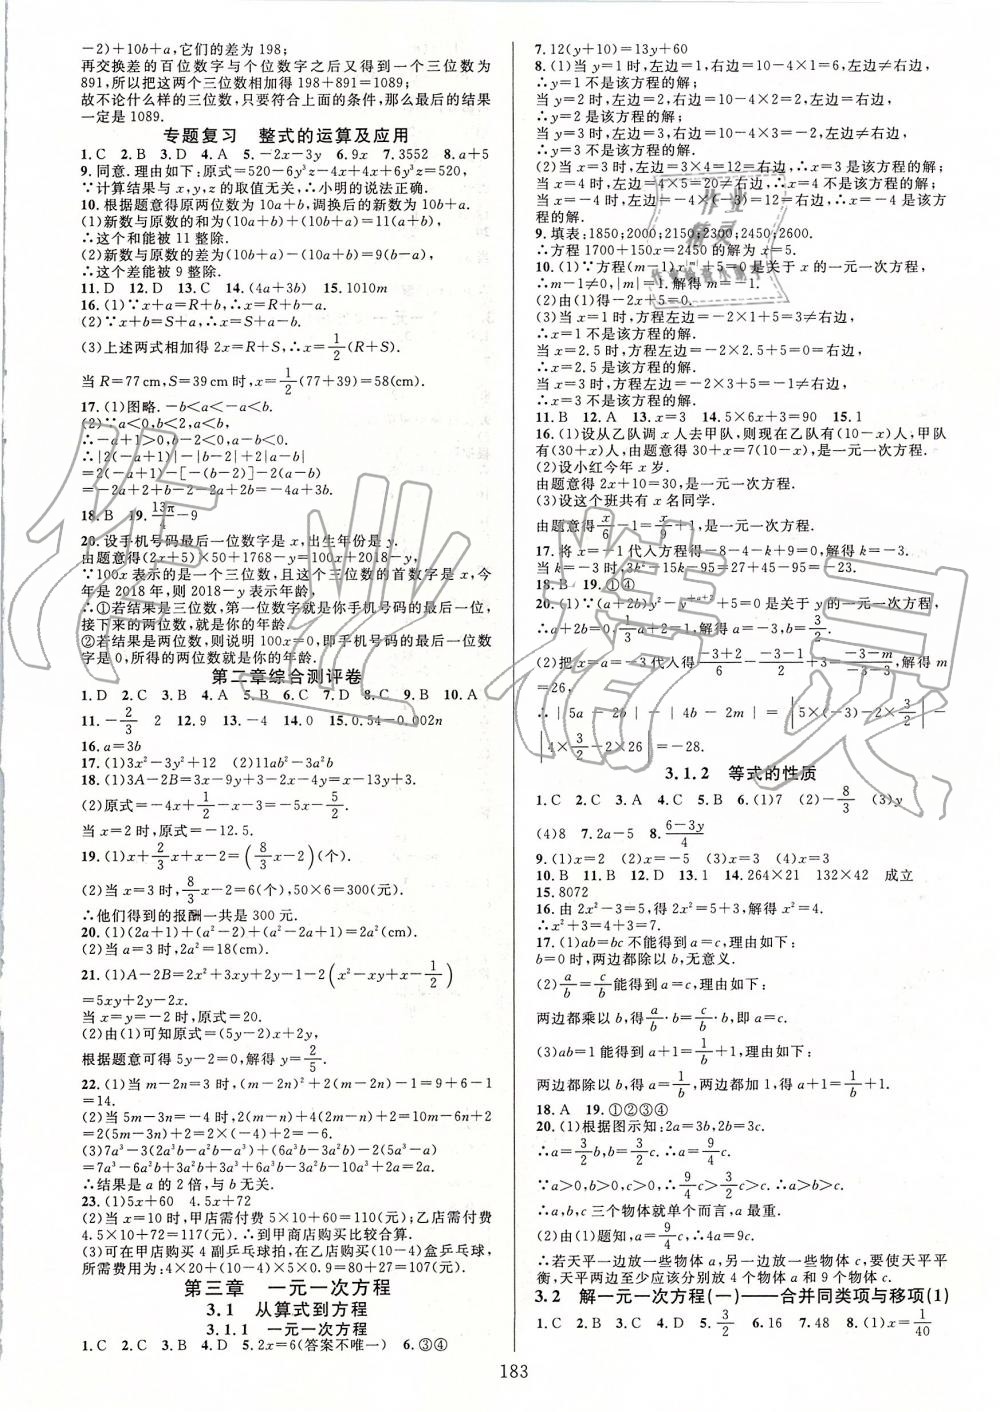 -2)+10b+a,它们的差为198;
再交换差的百位数字与个位数字之后又得到一个三位数为
891,所以把这两个三位数相加得198+891=1089;
故不论什么样的三位数,只要符合上面的条件,那么最后的结果
一定是1089.
专题复习 整式的运算及应用
1.C 2.B 3.D 4.A 5.-2x-3y 6.9x 7.3552 8.a+5
9.同意.理由如下:原式=520-6y³z-4x+4x+6y³z=520,
∵计算结果与x,y,z的取值无关,∴小明的说法正确.
10.根据题意得原两位数为10a+b,调换后的新数为10b+a.
(1)新数与原数的和为(10a+b)+(10b+a)=11(a+b),
∴这个和能被11整除.
(2)新数与原数的差为(10a+b)-(10a+b)=9(a-b),
∴这个差能被9整除.
11.D 12.D 13.C 14.(4a+3b) 15.1010m
16.(1)∵x+a=R+b,∴x=R+b-a.
(2)∵x+b=S+a,∴x=S+a-b.
(3)上述两式相加得2x=R+S,∴x=1/2(R+S).
当R=77cm,S=39cm时,x=1/2(77+39)=58(cm).
17.(1)图略.-b<a<-a<b.
(2)∵a<0,b<2,a<b,
∴-a+1>0,-b-2<0,a-b<0,
∴|2(-a+1)|-|b-2|+2|a-b|
=2(-a+1)-[-(b-2)]-2(a-b)
=-2a+2+b-2-2a+2b=-4a+3b.
18.B 19.13π/4-9
20.设手机号码最后一位数字是x,出生年份是y.
由题意得(2x+5)×50+1768-y=100x+2018-y,
∵100x表示的是一个三位数,且这个三位数的首数字是x,今
年是2018年,则2018-y表示年龄,
∴①若结果是三位数,第一位数字就是你手机号码的最后一位,
接下来的两位数,就是你的年龄.
②若结果是两位数,则说明100x=0,即手机号码的最后一位数
字是0,所得的两位数就是你的年龄.
第二章综合测评卷
1.D 2.C 3.B 4.A 5.B 6.C 7.D 8.C 9.B 10.A
11.-2/3 2 12.9 13.-4 14.0 15.0.54-0.002n
16.a=3b
17.(1)3x²-3y²+12 (2)11ab²-3a²b
18.(1)3A-2B=3x-9xy-2x-2xy=x-11xy.
(2)原式=-4x+1/2-2x-3x-5/2.
当x=2时,原式=-12.5.
19.(1)x+2/3x+x-2=(8/3x-2)(个).
(2)当x=3时,8/3x-2=6(个),50×6=300(元).
∴他们得到的报酬一共是300元.
20.(1)(2a+1)+(2a-1)-2a²=4a-2a²(cm).
(2)当a=3时,2a²=18(cm).
21.(1)A-2B=2x²+3xy+2y-1-2(x²-xy+x-1/2)
=5xy+2y-2x.
当x=y=-2时,原式=20.
(2)由(1)可知原式=(5y-2)x+2y,
根据题意可得5y-2=0,解得y=2/5.
22.(1)当m-2n=3时,(m-2n)²+2(m-2n)-1=9+6-1
=14.
(2)当5m-3n=-4时,2(m-n)+4(2m-n)+2=10m-6n+2
=2(5m-3n)+2=-8+2=-6.
(3)7a³-3(2a³b-a²b-a³)+(6a³b-3a²b)-2(5a³-a)
=7a³-6a³b+3a²b+3a³+6a³b-3a²b-10a³+2a=2a.
∴结果是a的2倍,与b无关.
23.(1)5x+60 4.5x+72
(2)当x=10时,甲店需付费5×10+60=110(元);乙店需付费
4.5×10+72=117(元),∴到甲商店购买比较合算.
(3)可在甲店购买4副乒乓球拍,在乙店购买(10-4)盒乒乓球,
所需费用为:4×20+(10-4)×5×0.9=80+27=107(元).
第三章 一元一次方程
3.1 从算式到方程
3.1.1 一元一次方程
1.C 2.C 3.B 4.D 5.2x=6(答案不唯一) 6.③④
7.12(y+10)=13y+60
8.(1)当y=1时,左边=1,右边=10-4×1=6,左边≠右边,
∴y=1不是该方程的解;
当y=2时,左边=2,右边=10-4×2=2,左边=右边,
∴y=2是该方程的解;
当y=3时,左边=3,右边=10-4×3=-2,左边≠右边,
∴y=3不是该方程的解.
(2)当x=3时,左边=3×4=12=右边,∴x=3是该方程的解;
当x=4时,左边=4×5=20≠右边,∴x=4不是该方程的解;
当x=-4时,左边=-4×(-3)=12=右边,∴x=-4是该方
程的解.
9.填表:1850;2000;2150;2300;2450;2600.
∴方程1700+150x=2450的解为x=5.
10.(1)∵方程(m-1)x|m|+5=0是关于x的一元一次方程,
∴m-1≠0,|m|=1.解得m=-1.
(2)由(1)得-2x+5=0.
(3)当x=1时,方程左边=-2×1+5=3≠0,
∴x=1不是该方程的解.
当x=2.5时,方程左边=-2×2.5+5=0,
∴x=2.5是该方程的解.
当x=3时,方程左边=-2×3+5=-1≠0,
∴x=3不是该方程的解.
11.B 12.A 13.x=3 14.5×6x+3=90 15.1
16.(1)设从乙队调x人去甲队,则现在乙队有(10-x)人,甲队
有(30+x)人,由题意得30+x=7(10-x),是一元一次方程.
(2)设小红今年x岁.
由题意得2x+10=30,是一元一次方程.
(3)设这个班共有x名同学.
由题意得x/6-1=x/9+1,是一元一次方程.
17.将x=-1代入方程得-8-4-k+9=0,解得k=-3.
当k=-3时,3k²-15k-95=27+45-95=-23.
18.B 19.①④
20.(1)∵(a+2b)y²-y+5=0是关于y的一元一次方程,
∴a+2b=0,1/3a+2=1,解得a=-3,b=3/2.
(2)把x=a=-3代入得(-3+2)/6-(-3-1)/2+3=-3-(-3-m)/3,解得m
=26,
∴|5a-2b|-|4b-2m|=|5×(-3)-2×3/2|-
|4×3/2-2×26|=-28.
3.1.2 等式的性质
1.C 2.C 3.A 4.C 5.B 6.(1)7 (2)-8/3 (3)y
(4)8 7.2a-5 8.(6-3y)/4
9.(1)x=2 (2)x=-5 (3)x=3
10.B 11.B 12.D 13.1 14.264×21 132×42 成立
15.8072
16.由2x²-3=5,得2x²=5+3,解得x²=4,
∴x²+3=4+3=7.
17.(1)ab=bc不能得到a=c,理由如下:
b=0时,两边都除以b,无意义.
(2)a/b=c/b能得到a=c,理由如下:
两边都乘以b,得a/b·b=c/b·b,即a=c.
(3)ab=1能得到a+1=1/b+1,理由如下:
两边都除以b,得a=1/b,两边都加1,得a+1=1/b+1.
18.A 19.①②③④
20.(1)根据图示知:2a=3b,2b=3c.
∴a=3/2b,b=3/2c.∴a=9/4c.
∵a>0,b>0,c>0,∴9/4c>3/2c>c.∴a>b>c.
∴a,b,c三个物体就单个而言,a最重.
(2)由(1)题知,a=9/4c,∴4a=9c.
∴若天平一边放一些物体a,另一边放一些物体c,要使天平平
衡,天平两边至少应该分别放4个物体a和9个物体c.
3.2 解一元一次方程(一)——合并同类项与移项(1)
1.C 2.B 3.C 4.D 5.3/2 6.16 7.48 8.(1)x=1/40
183
作业精灵